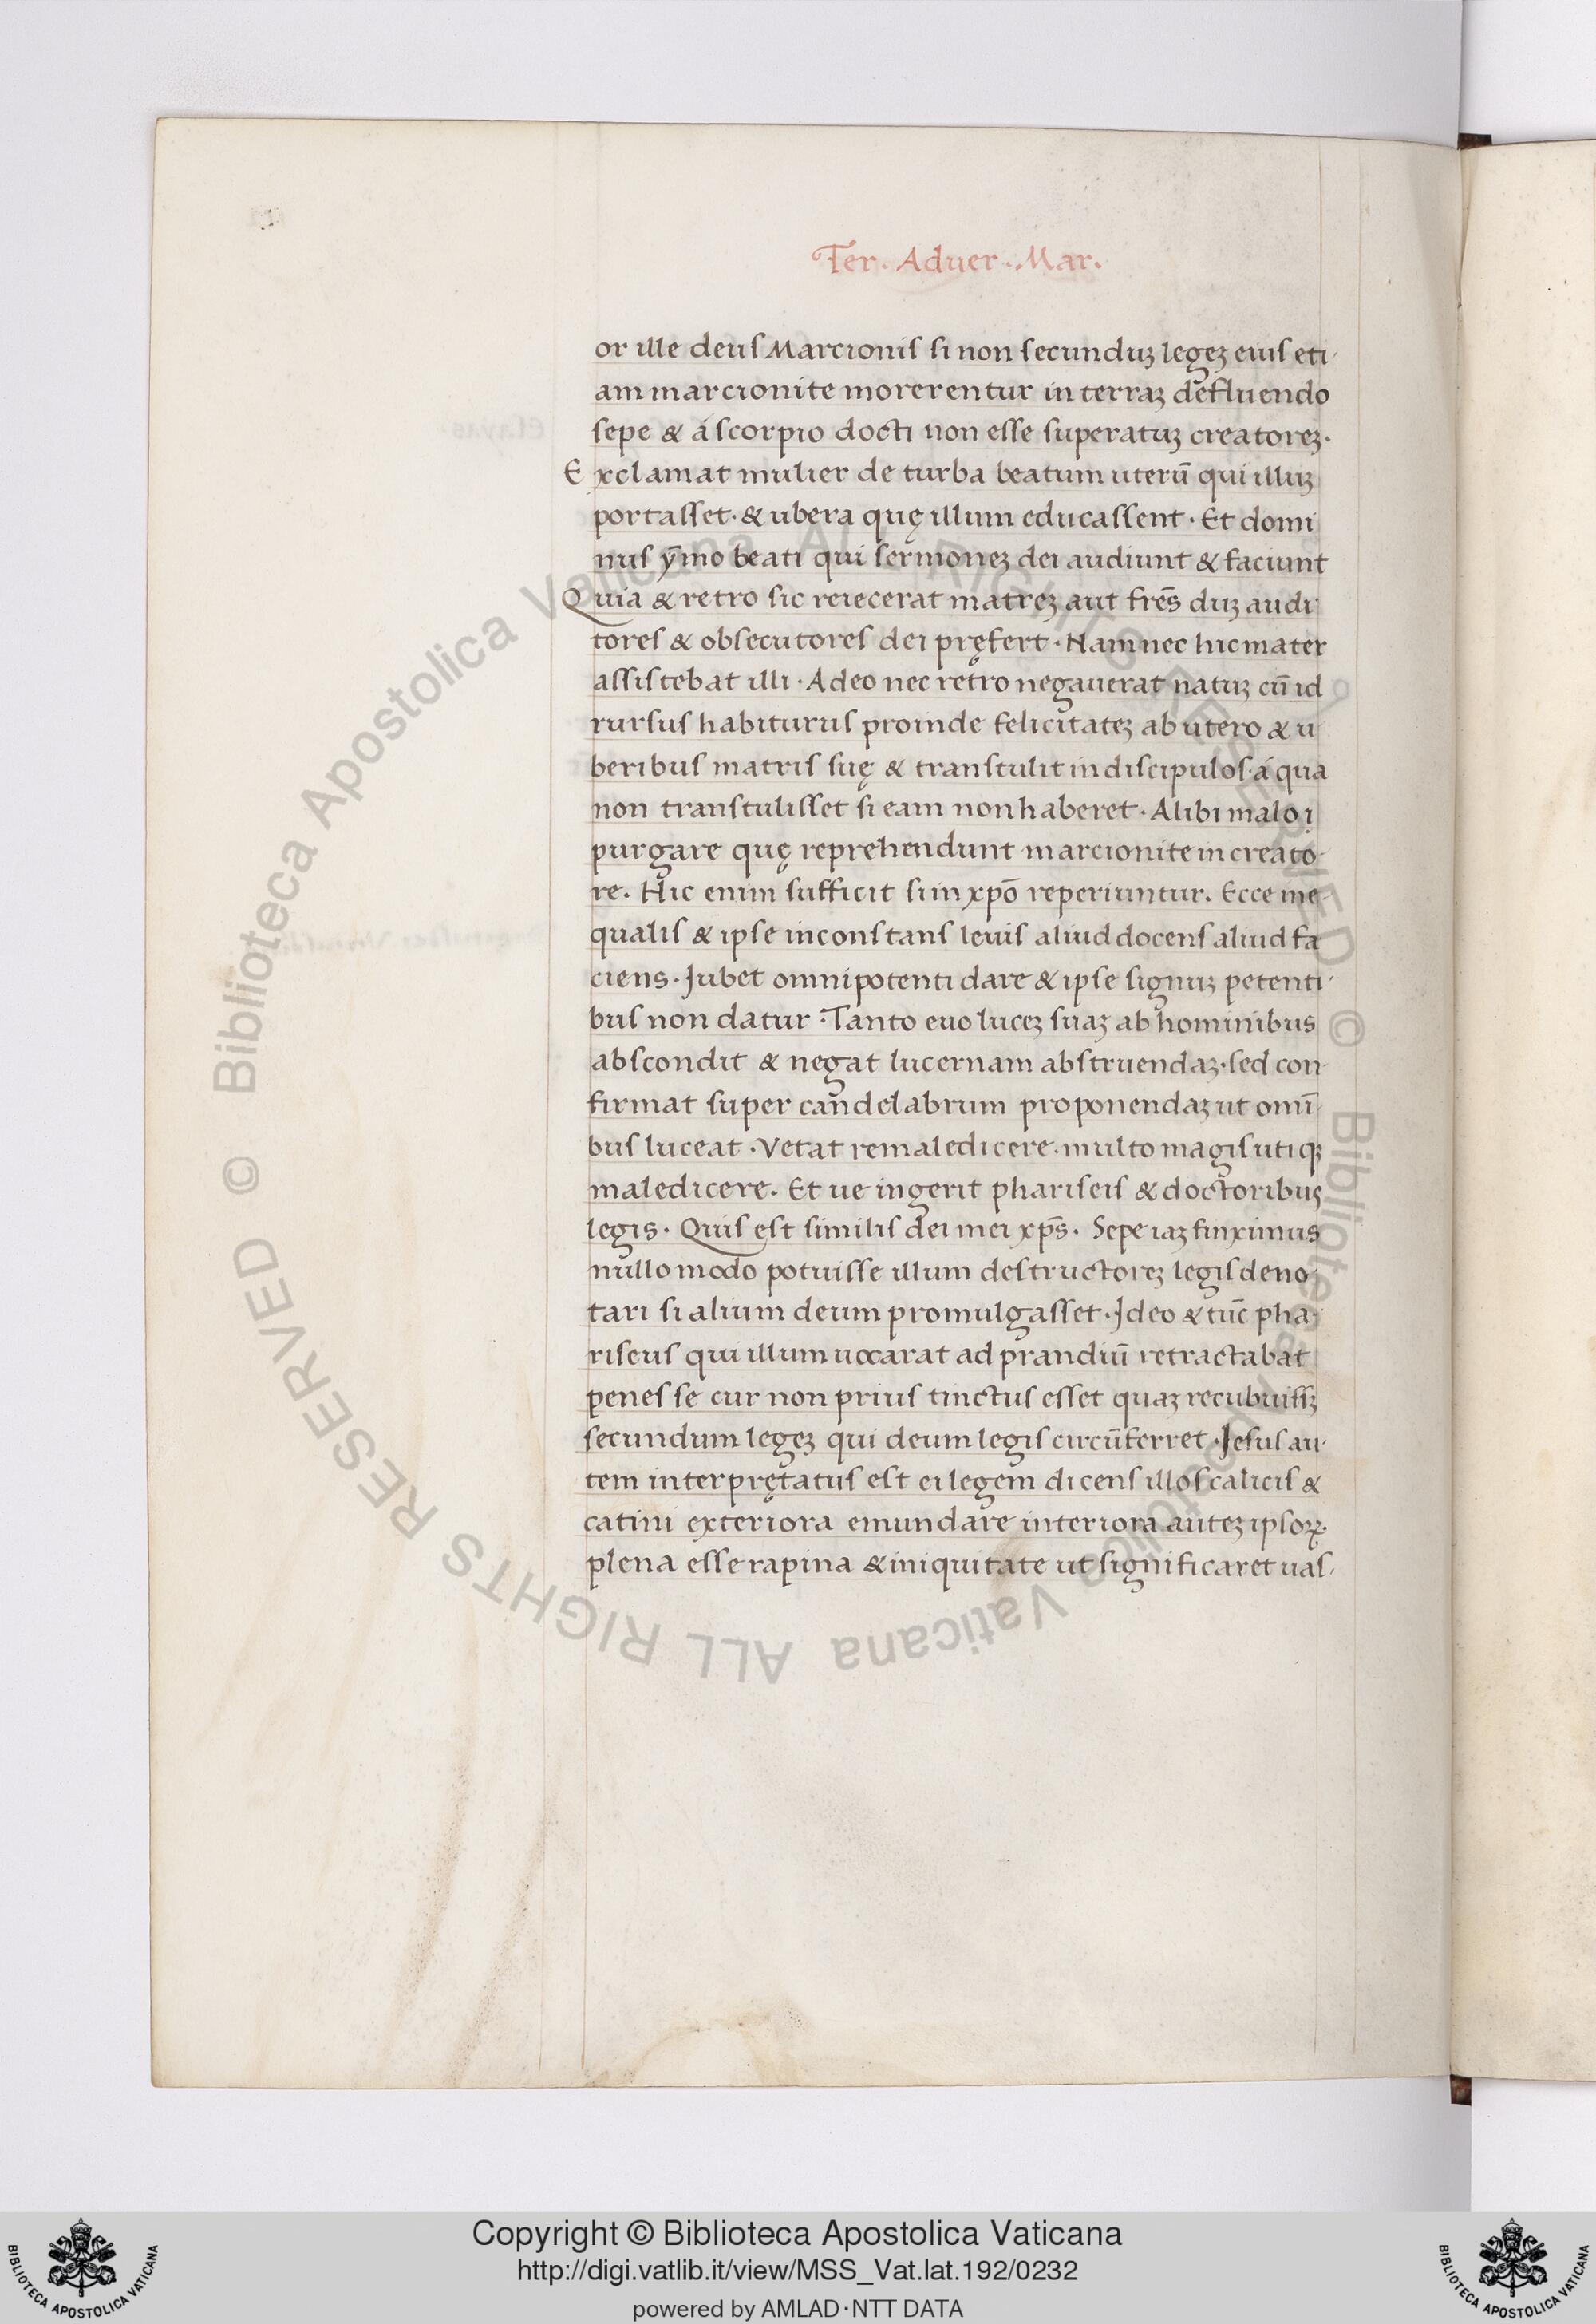 Ter. Aduer. Mar.
or ille deus Marcionis si non secunduꝫ legeꝫ eius eti-
am marcionite morerentur in terraꝫ defluendo
sepe & á scorpio docti non esse superatuꝫ creatoreꝫ.
Exclamat mulier de turba beatum uterū qui illuꝫ
portasset. & ubera quę illum educassent. Et domi
nus ȳmo beati qui sermoneꝫ dei audiunt & faciunt
Quia & retro sic reiecerat matreꝫ aut frēs duꝫ audi
tores & obsecutores dei pręfert. Nam nec hic mater
assistebat illi. Adeo nec retro negauerat natuꝫ cū id
rursus habiturus proinde felicitateꝫ ab utero & u
beribus matris suę & transtulit in discipulos. á qua
non transtulisset si eam non haberet. Alibi malo i
purgare quę reprehendunt marcionite in creato-
re. Hic enim sufficit si in xp̄o reperiuntur. Ecce ine-
qualis & ipse inconstans leuis aliud docens aliud fa
ciens. Jubet omnipotenti dare & ipse signuꝫ petenti-
bus non datur. Tanto euo luceꝫ suaꝫ ab hominibus
abscondit & negat lucernam abstruendaꝫ. sed con-
firmat super candelabrum proponendaꝫ ut omī-
bus luceat. Vetat remaledicere. multo magis utiqꝫ
maledicere. Et ue ingerit phariseis & doctoribus
legis. Quis est similis dei mei xp̄s. Sepe iaꝫ finximus
nullo modo potuisse illum destructoreꝫ legis deno-
tari si alium deum promulgasset. Jdeo & tūc pha-
riseus qui illum uocarat ad prandiū retractabat
penes se cur non prius tinctus esset quaꝫ recubuissꝫ
secundum legeꝫ qui deum legis circūferret. Jesus au-
tem interprętatus est ei legem dicens illos calicis &
catini exteriora emundare interiora auteꝫ ipsoꝝ.
plena esse rapina & iniquitate ut significaret uas-
Copyright © Biblioteca Apostolica Vaticana
http://digi.vatlib.it/view/MSS_Vat.lat.192/0232
powered by AMLAD·NTT DATA
© Biblioteca Apostolica Vaticana ALL RIGHTS RESERVED
© Biblioteca Apostolica Vaticana ALL RIGHTS RESERVED
BIBLIOTECA APOSTOLICA VATICANA
BIBLIOTECA APOSTOLICA VATICANA